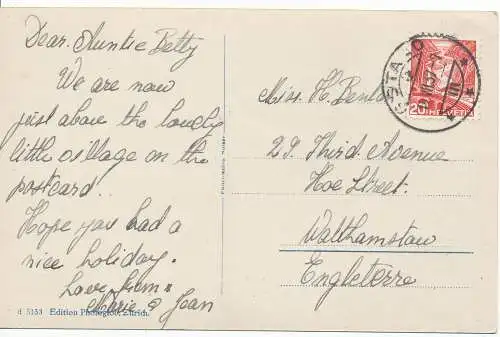 Dear. Auntie Betty
We are now
just above the lovely
little village on the
postcard.
Hope you had a
nice holiday.
Love from
Marie & Jean
d 5153 Edition Photoglob, Zürich.
Miss. H.
29 Third Avenue
Hoe Street.
Walthamstow
Engleterre
20 HELVETIA